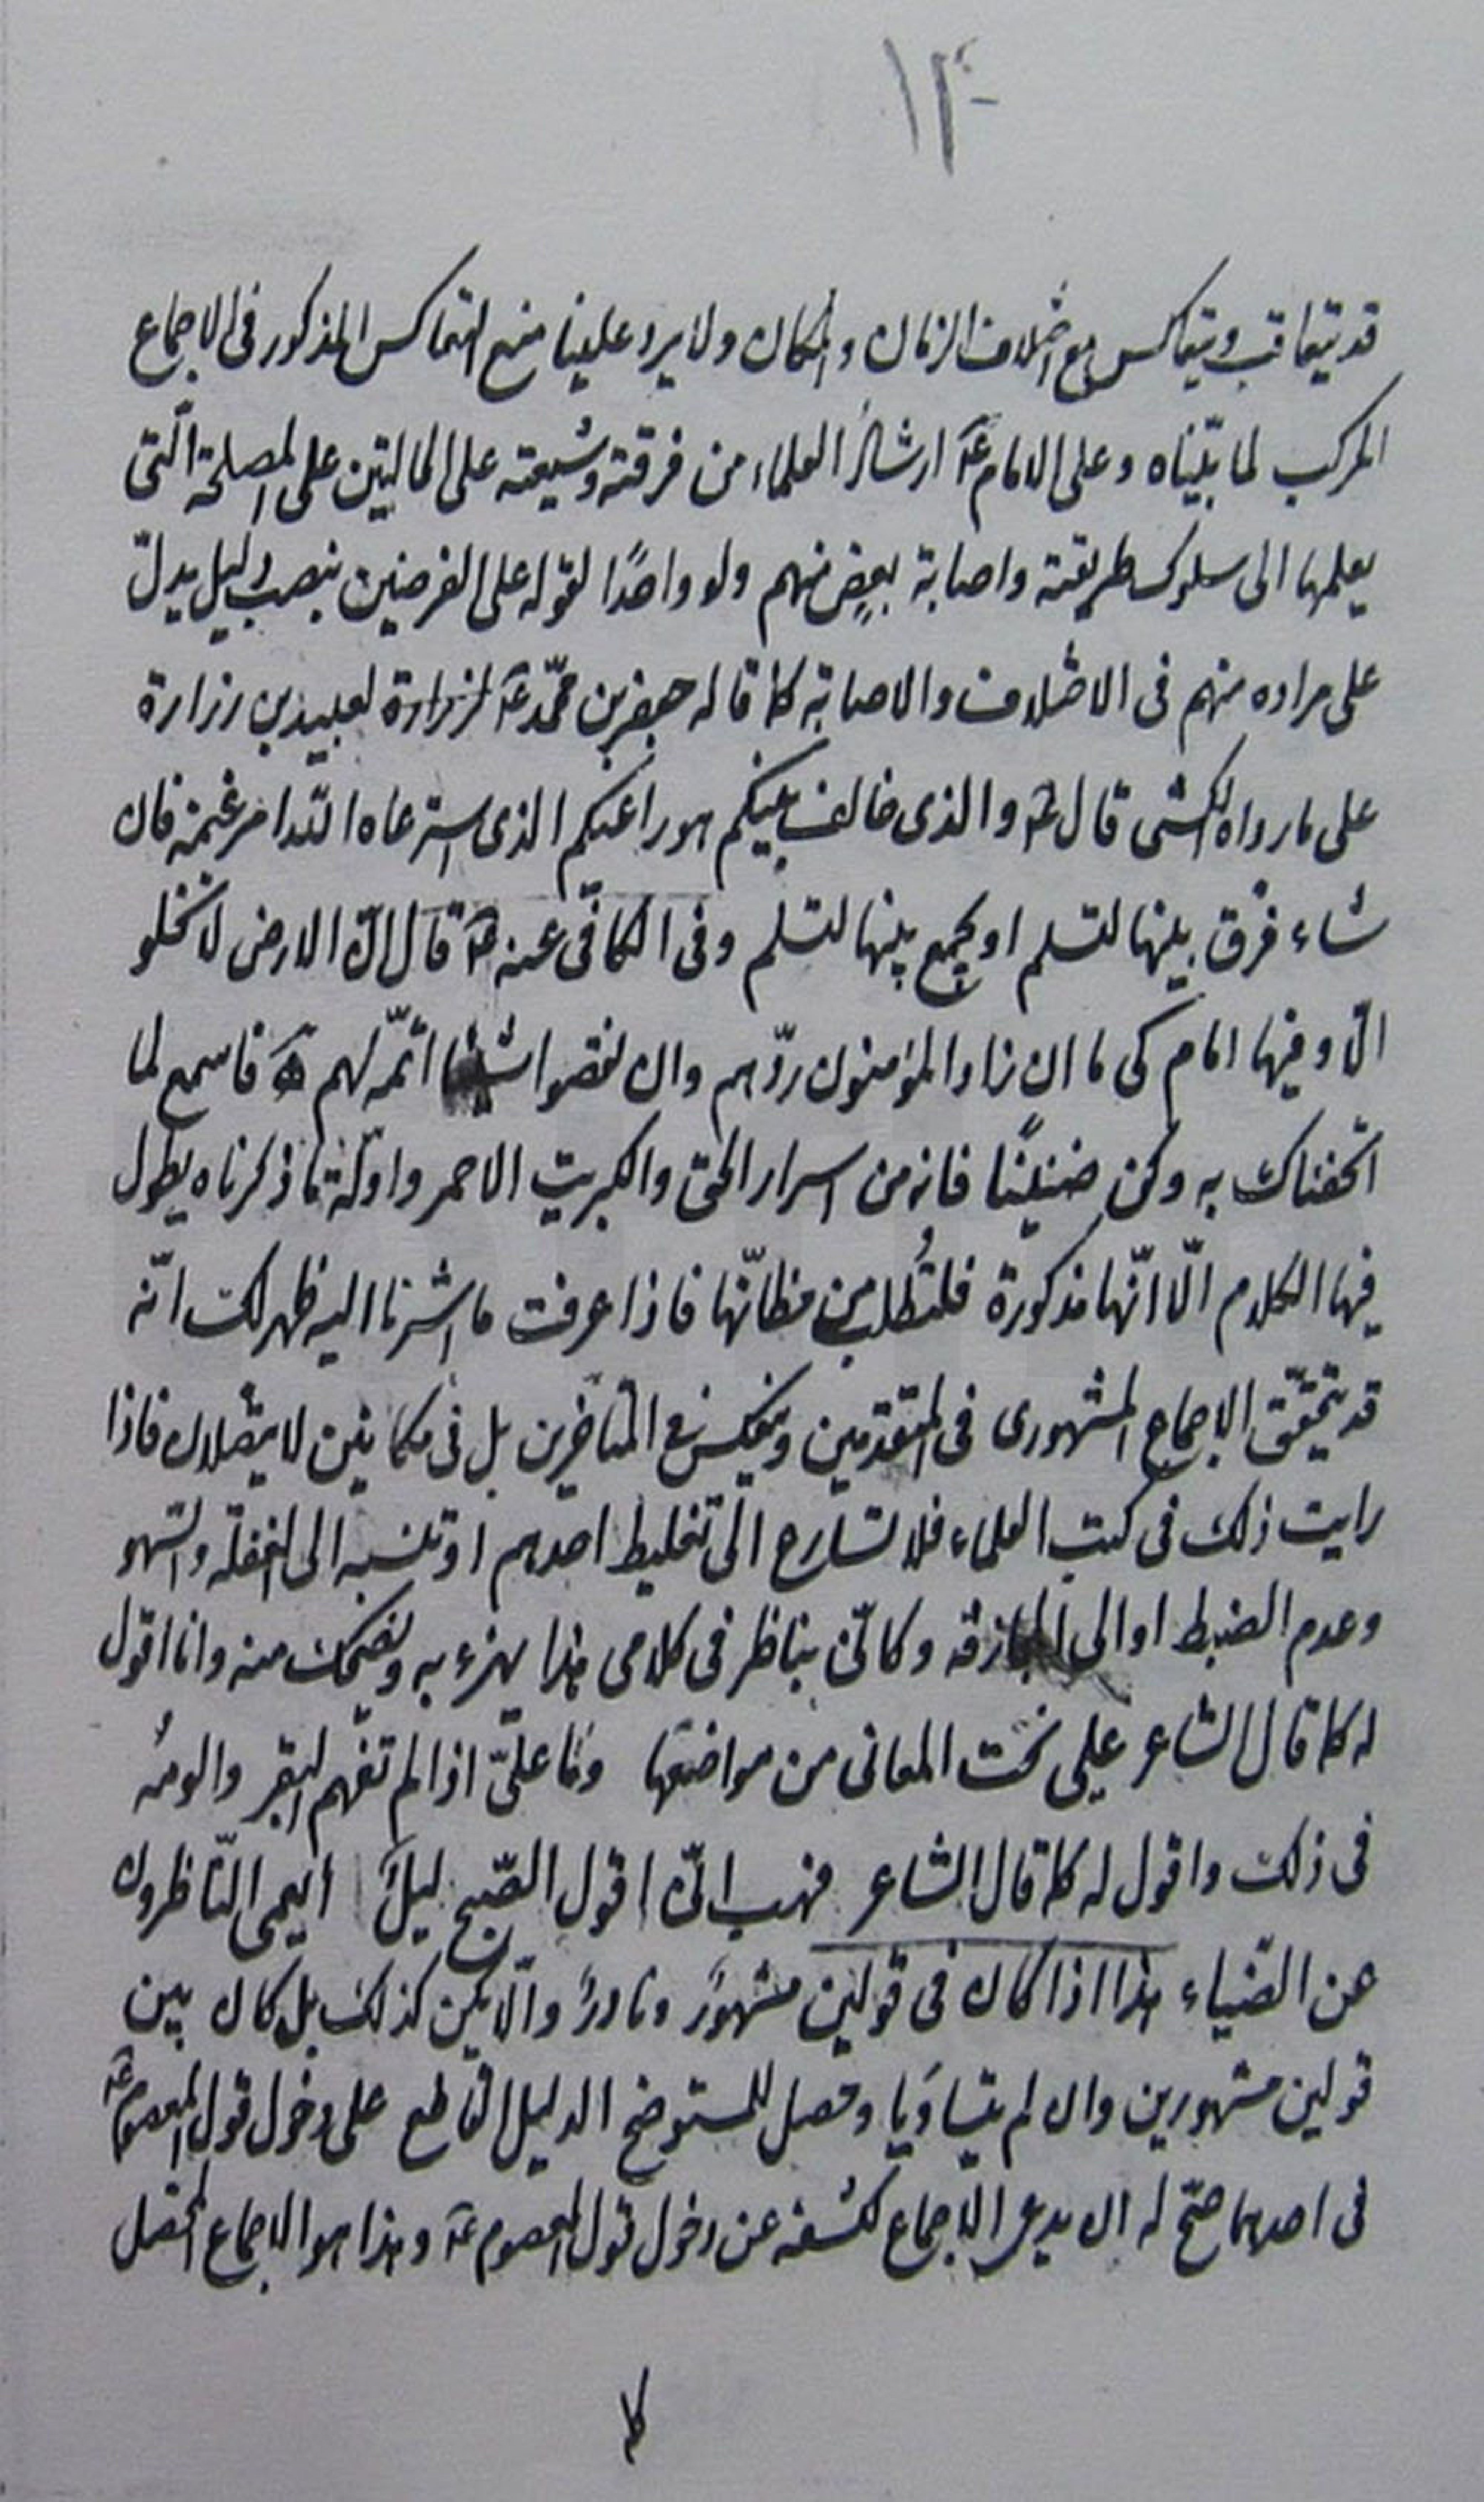 ١٣٠
قد يتعاقب ويتعاكس مع اختلاف الزمان والمكان ولا يرد علينا منع التعاكس المذكور فى الاجماع
المركب لما بيّناه وعلى الامام عَ ارشاد العلماء من فرقته وشيعته على الحالتين على المصلحة الّتى
يعلمها الى سلوك طريقته واصابة بعضٍ منهم ولو واحدًا لقوله على الفرضين بنصب دليل يدلّ
على مراده منهم فى الاختلاف والاصابة كما قاله جعفر بن محمّد عَ لزرارة لعبيد بن زرارة
على ما رواه الكشى قال عَ والذى خالف بينكم هو راعيكم الذى استرعاه الله امر غنمه فان
شاء فرّق بينها لتسلم او يجمع بينها لتسلم وفى الكافى عنه عَ قال انّ الارض لا تخلو
الّا وفيها امام كى ما ان زاد المؤمنون ردّهم وان نقصوا شيئا اتمّه لهم عَ فاسمع لما
اتحفناك به وكن ضنينًا فانه من اسرار الحق والكبريت الاحمر وادلّة ما ذكرناه يطول
فيها الكلام الّا انّها مذكورة فلتُطلب من مظانّها فاذا عرفت ما اشرنا اليه ظهر لك انّه
قد يتحقّق الاجماع المشهورى فى المتقدمين وينعكس فى المتاخرين بل فى مكانين لا يتصلان فاذا
رايت ذلك فى كتب العلماء فلا تسارع الى تغليط احدهم او تنسبه الى الغفلة والسّهو
وعدم الضبط او الى المجازفة وكانّى بناظر فى كلامى هذا يهزء به ويضحك منه وانا اقول
له كما قال الشاعر علىّ نحت المعانى من مواضعها وما علىّ اذا لم تفهم البقر والومُه
فى ذلك واقول له كما قال الشاعر فهب انّى اقول الصّبح ليلً أيعمى النّاظرون
عن الضّياء هذا اذا كان فى قولين مشهورً ونادرً والّا يكن كذلك بل كان بين
قولين مشهورين وان لم يتساوَيا وحصل للمستوضح الدليل القاطع على دخول قول المعصوم عَ
فى احدهما صحّ له ان يدعى الاجماع لكشفه عن دخول قول المعصوم عَ وهذا هو الاجماع المحصل
كما